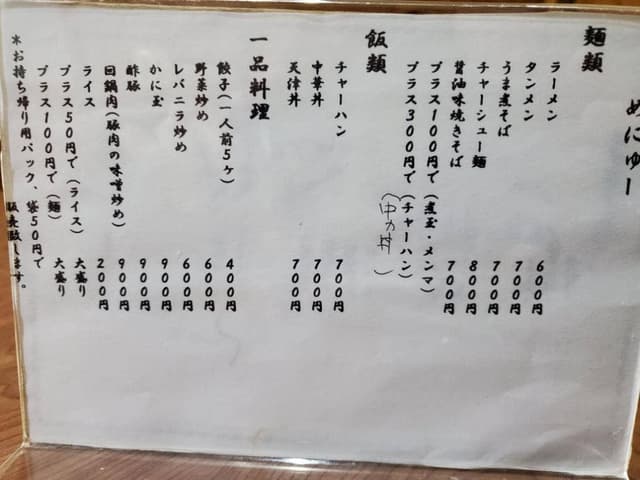 めにゅー
麺類
ラーメン 600円
タンメン 700円
うま煮そば 700円
チャーシュー麺 800円
醤油味焼きそば 700円
プラス100円で(煮玉・メンマ)
プラス300円で(チャーハン)
(中カ丼)
飯類
チャーハン 700円
中華丼 700円
天津丼 700円
一品料理
餃子(一人前5ヶ) 400円
野菜炒め 600円
レバニラ炒め 600円
かに玉 900円
酢豚 900円
回鍋肉(豚肉の味噌炒め) 900円
ライス 200円
プラス50円で(ライス) 大盛り
プラス100円で(麺) 大盛り
*お持ち帰り用パック、袋50円で
販売致します。